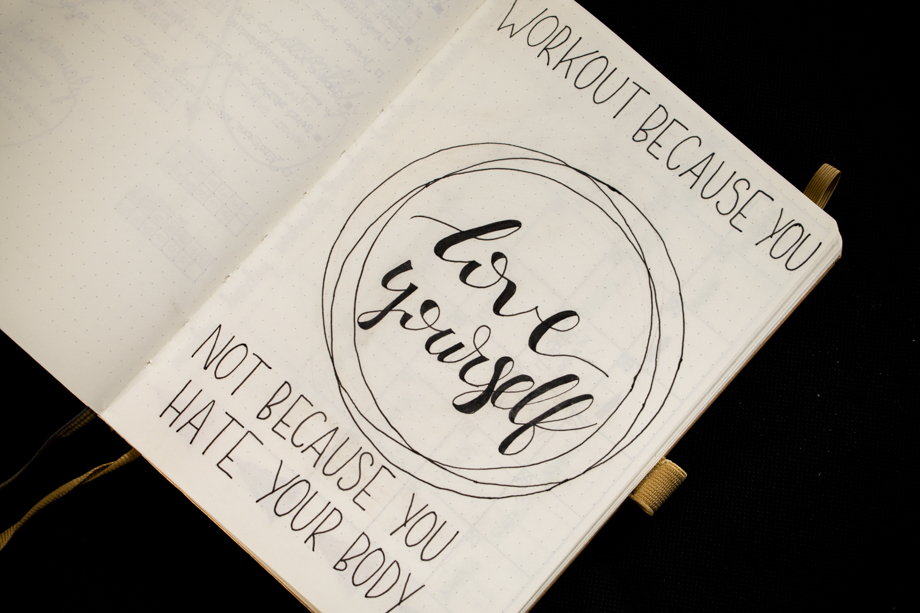 WORKOUT BECAUSE YOU
love
yourself
NOT BECAUSE YOU
HATE YOUR BODY